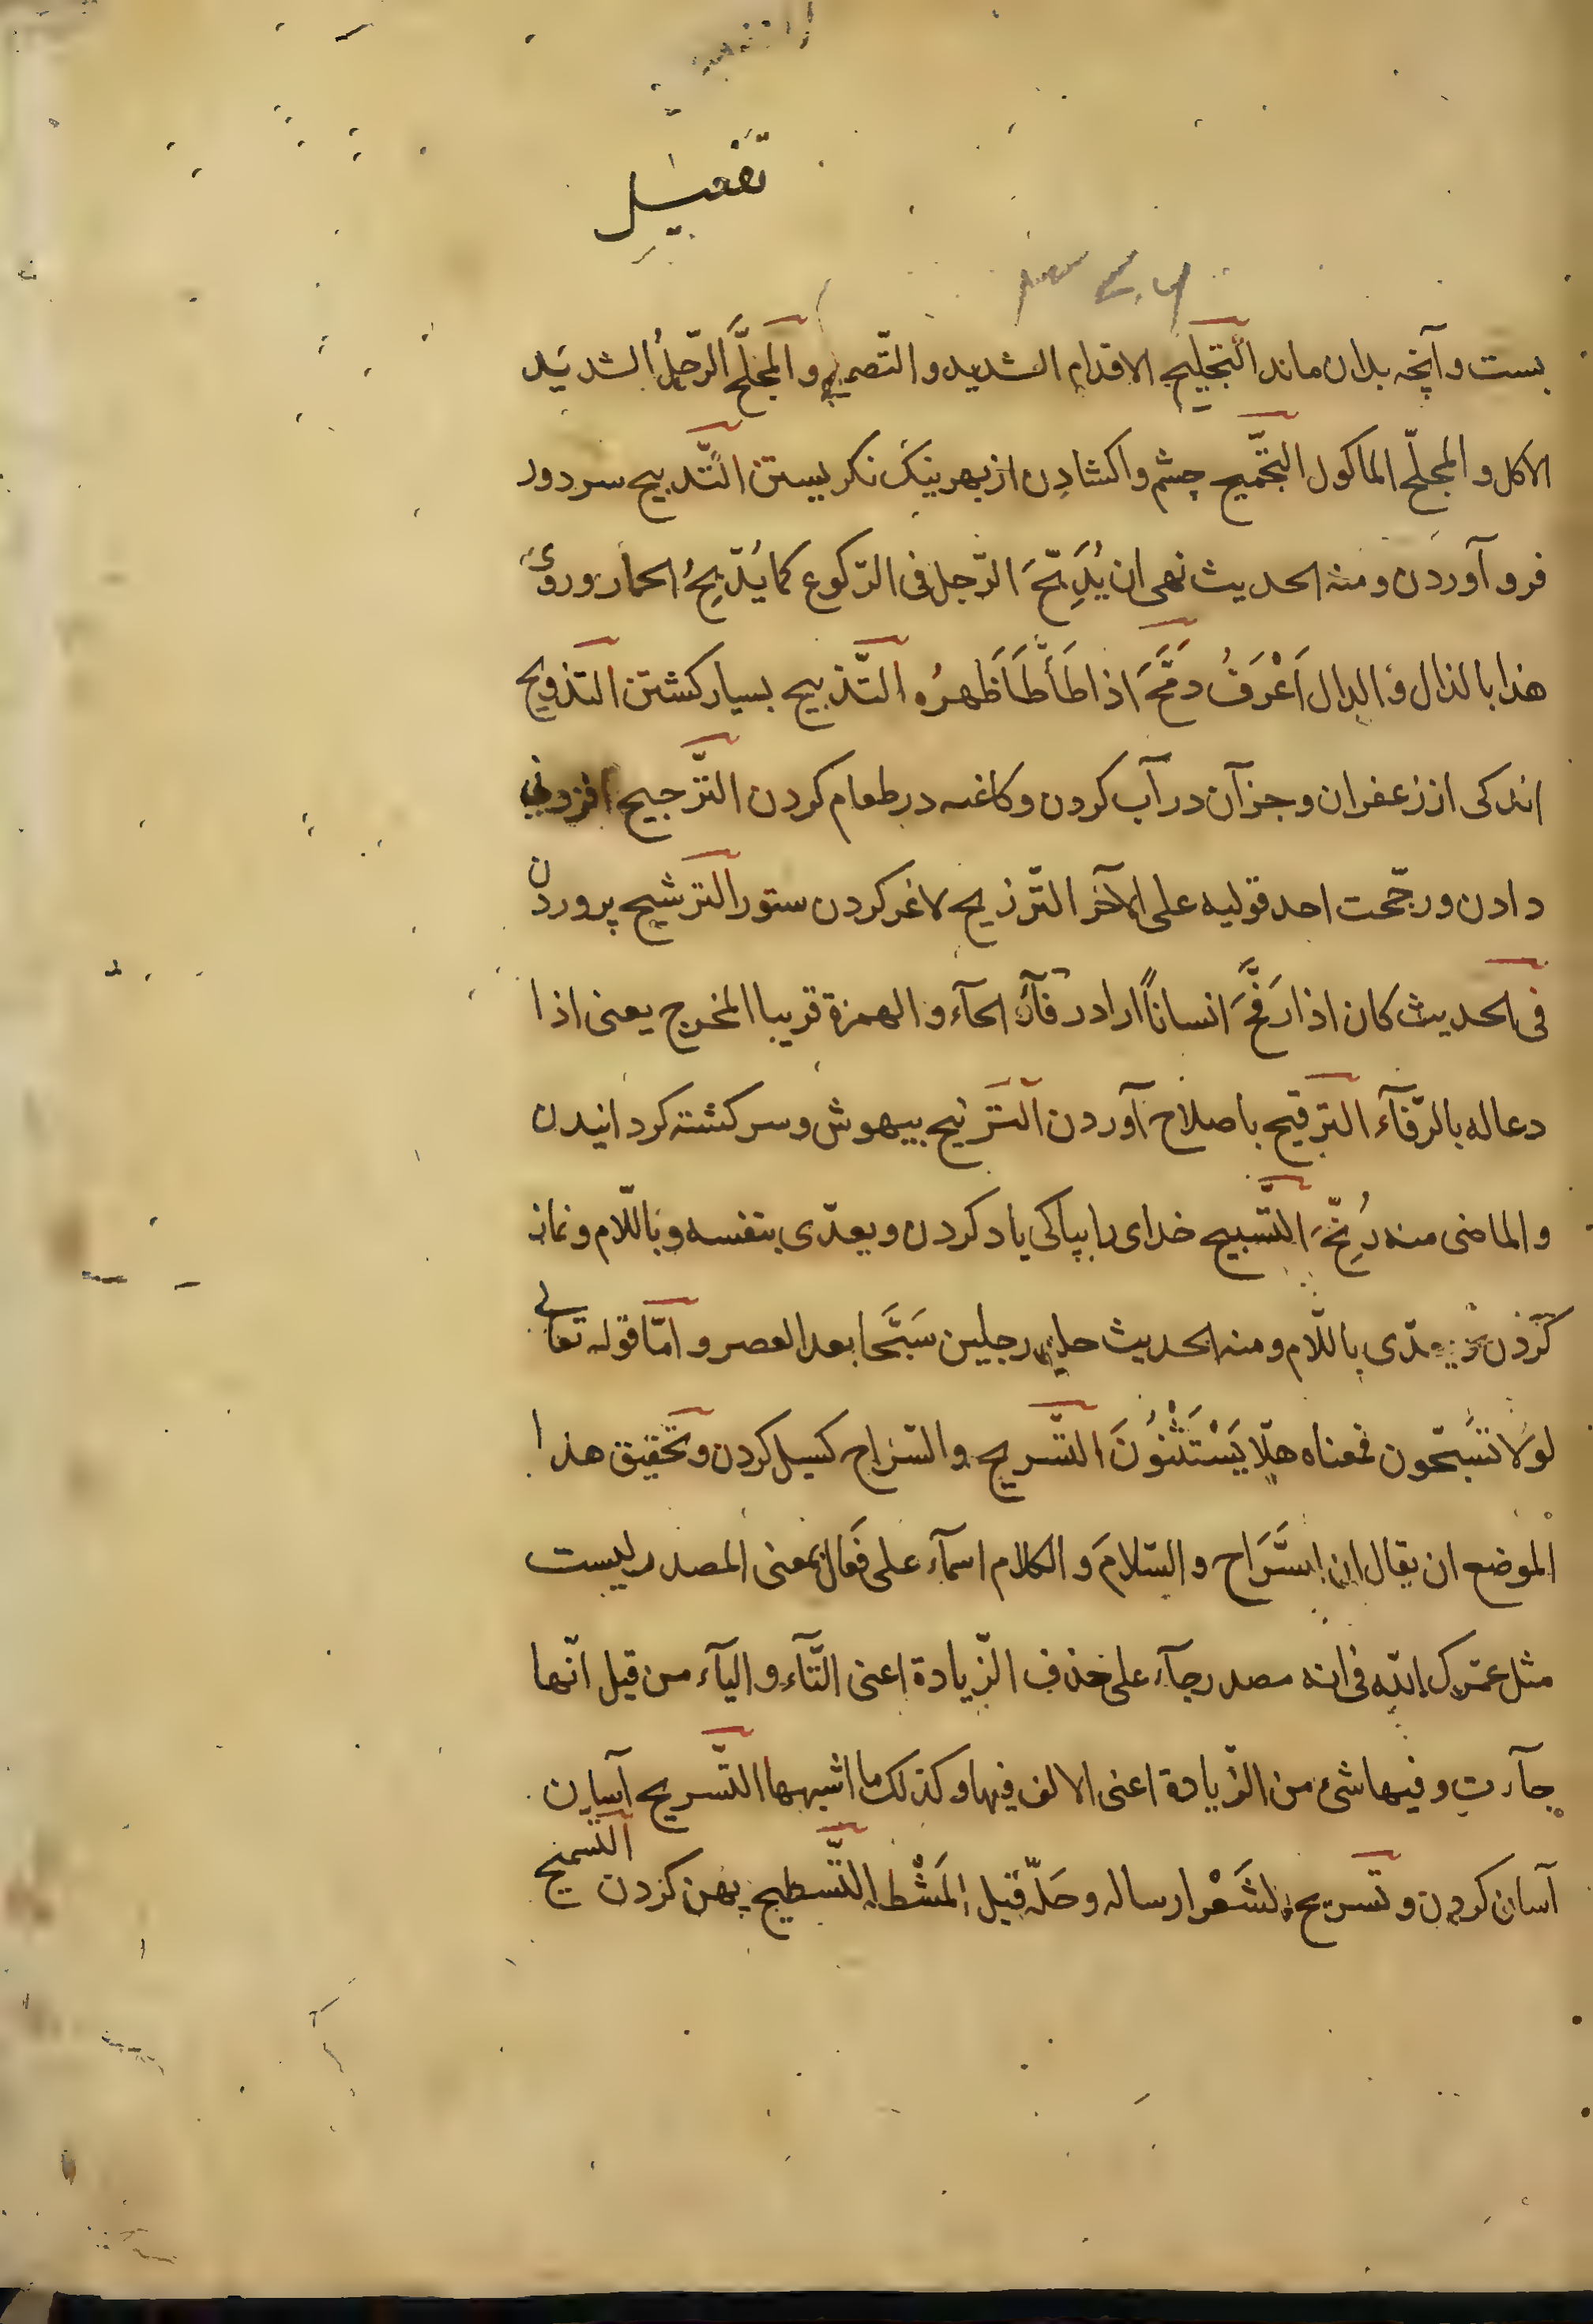 تفعیل
بست و آنچه بدان ماند التجلیح الاقدام الشدید و التصمیم و المجلّح الرّجلُ الشدید
الاکل و المجلّح الماکول التجمّیح چشم واکشادن از بهر نیک نکریستن التّدبیح سر دور
فرو آوردن و منه الحدیث نهی ان یُدَبِّحَ الرّجل فی الرّکوع کما یُدَبِّحُ الحمار و روی
هذا بالذال و الدال اَعْرَفُ دَبَّحَ اذا طَأطَأَ ظهرُه التّذبیح بسیار کشتن التذویح
اندکی از زعفران و جز آن در آب کردن و کاغه در طعام کردن التّرجیح افزونی
دادن و رجّحت احد قولیه علی الآخر التّرزیح لاغر کردن ستور الترشیح پروردن
فی الحدیث کان اذا رَفَّحَ انساناً اراد رفّأ الحآء و الهمزة قریبا المخرج یعنی اذا
دعا له بالرّفآء الترقیح باصلاح آوردن الترنیح بیهوش و سرکشته کردانیدن
و الماضی منه رُنِّحَ التّسبیح خدای را بپاکی یاد کردن و یعدّی بنفسه و باللّام و نماز
کردن و یعدّی باللّام و منه الحدیث جلد رجلین سَبَّحَا بعد العصر و امّا قوله تعالی
لولا تسَبّحون فمعناه هلّا یَسْتَثْنُونَ التّسریح و السّراح کسیل کردن و تحقیق هذا
الموضع ان یقال ان السَّرَاح و السّلامَ و الکلام اسمآء علی فَعَال بمعنی المصدر لیست
مثل عمّرک الله فی انه مصدر جآء علی حذف الزّیادة اعنی التّآء و الیآء من قبل انّها
جآءت و فیها شیء من الزّیادة اعنی الالف فیها و کذلک ما اشبهها التّسریح آسان
آسان کردن و تسریح الشَعْر ارساله و حَلّه قبل المَشْط التّسطیح پهن کردن التسمیح